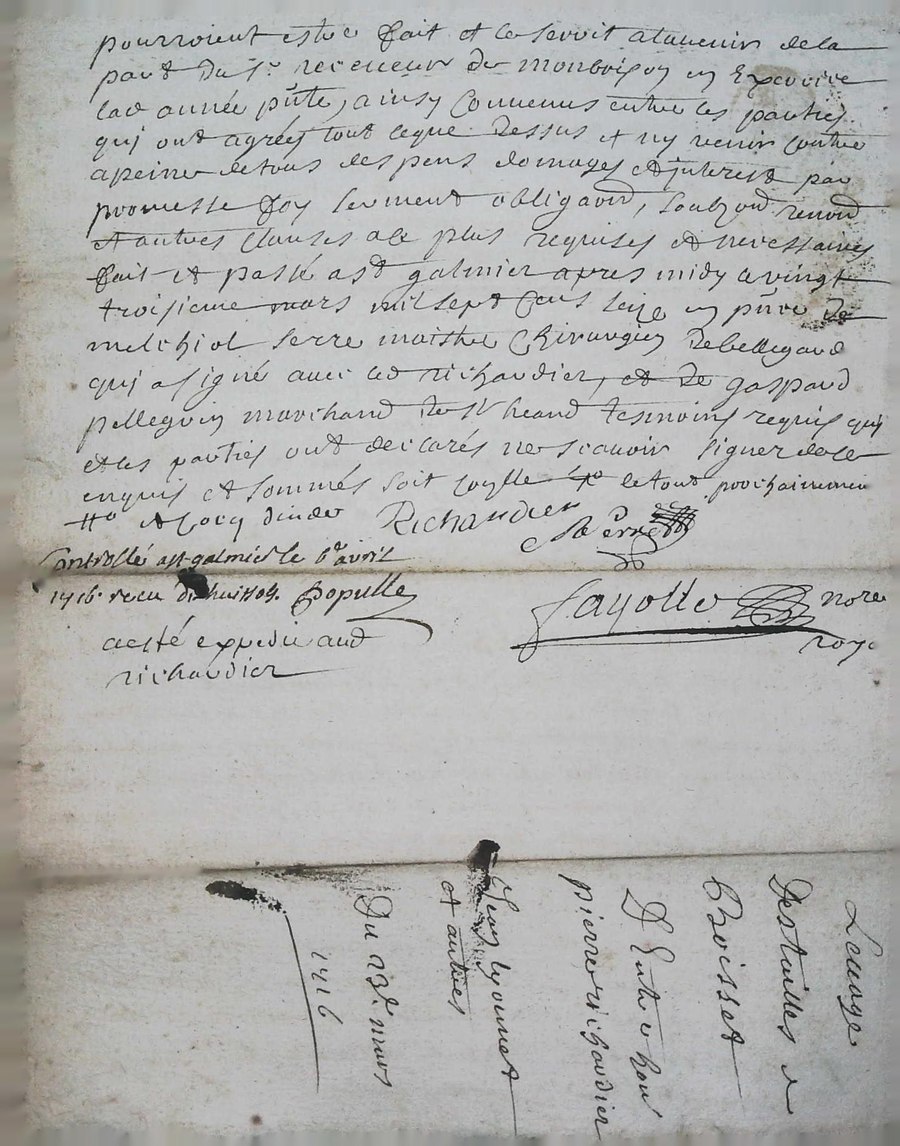 pourroient estre fait et ce seroit a lauenir de la
part du Sr. receueur de monbrison en Exercice
lad année pnte, ainsy Conuenus entre les parties
qui ont agréés tout ceque dessus et ny venir contre
apeine de tous despens domages et interest par
promesse foy serment obligaond, soubzond renond
et autres clauses ace plus requises et necessaires
fait et passé a st galmier apres midy le vingt
troisieme mars mil sept Cens seize en pnce de
melchiol serre maistre Chirurgien de bellegard
qui a signé auec led richaudier, et de gaspard
pellegrin marchand de st heand tesmoins requis qui
et les parties ont declarés ne scauoir signer de ce
enquis et sommés soit le tout
Richaudier
M Serre
Controllé a st galmier le 6e auril
1716. recu dixhuit sols. Populle
Fayolle nore
roy.
a esté expedie aud
richaudier
Leuage
Destailles de
Boisset
D'Entre hon
pierre richaudier
Jean lyonnet
et autres
Du 23e mars
1716